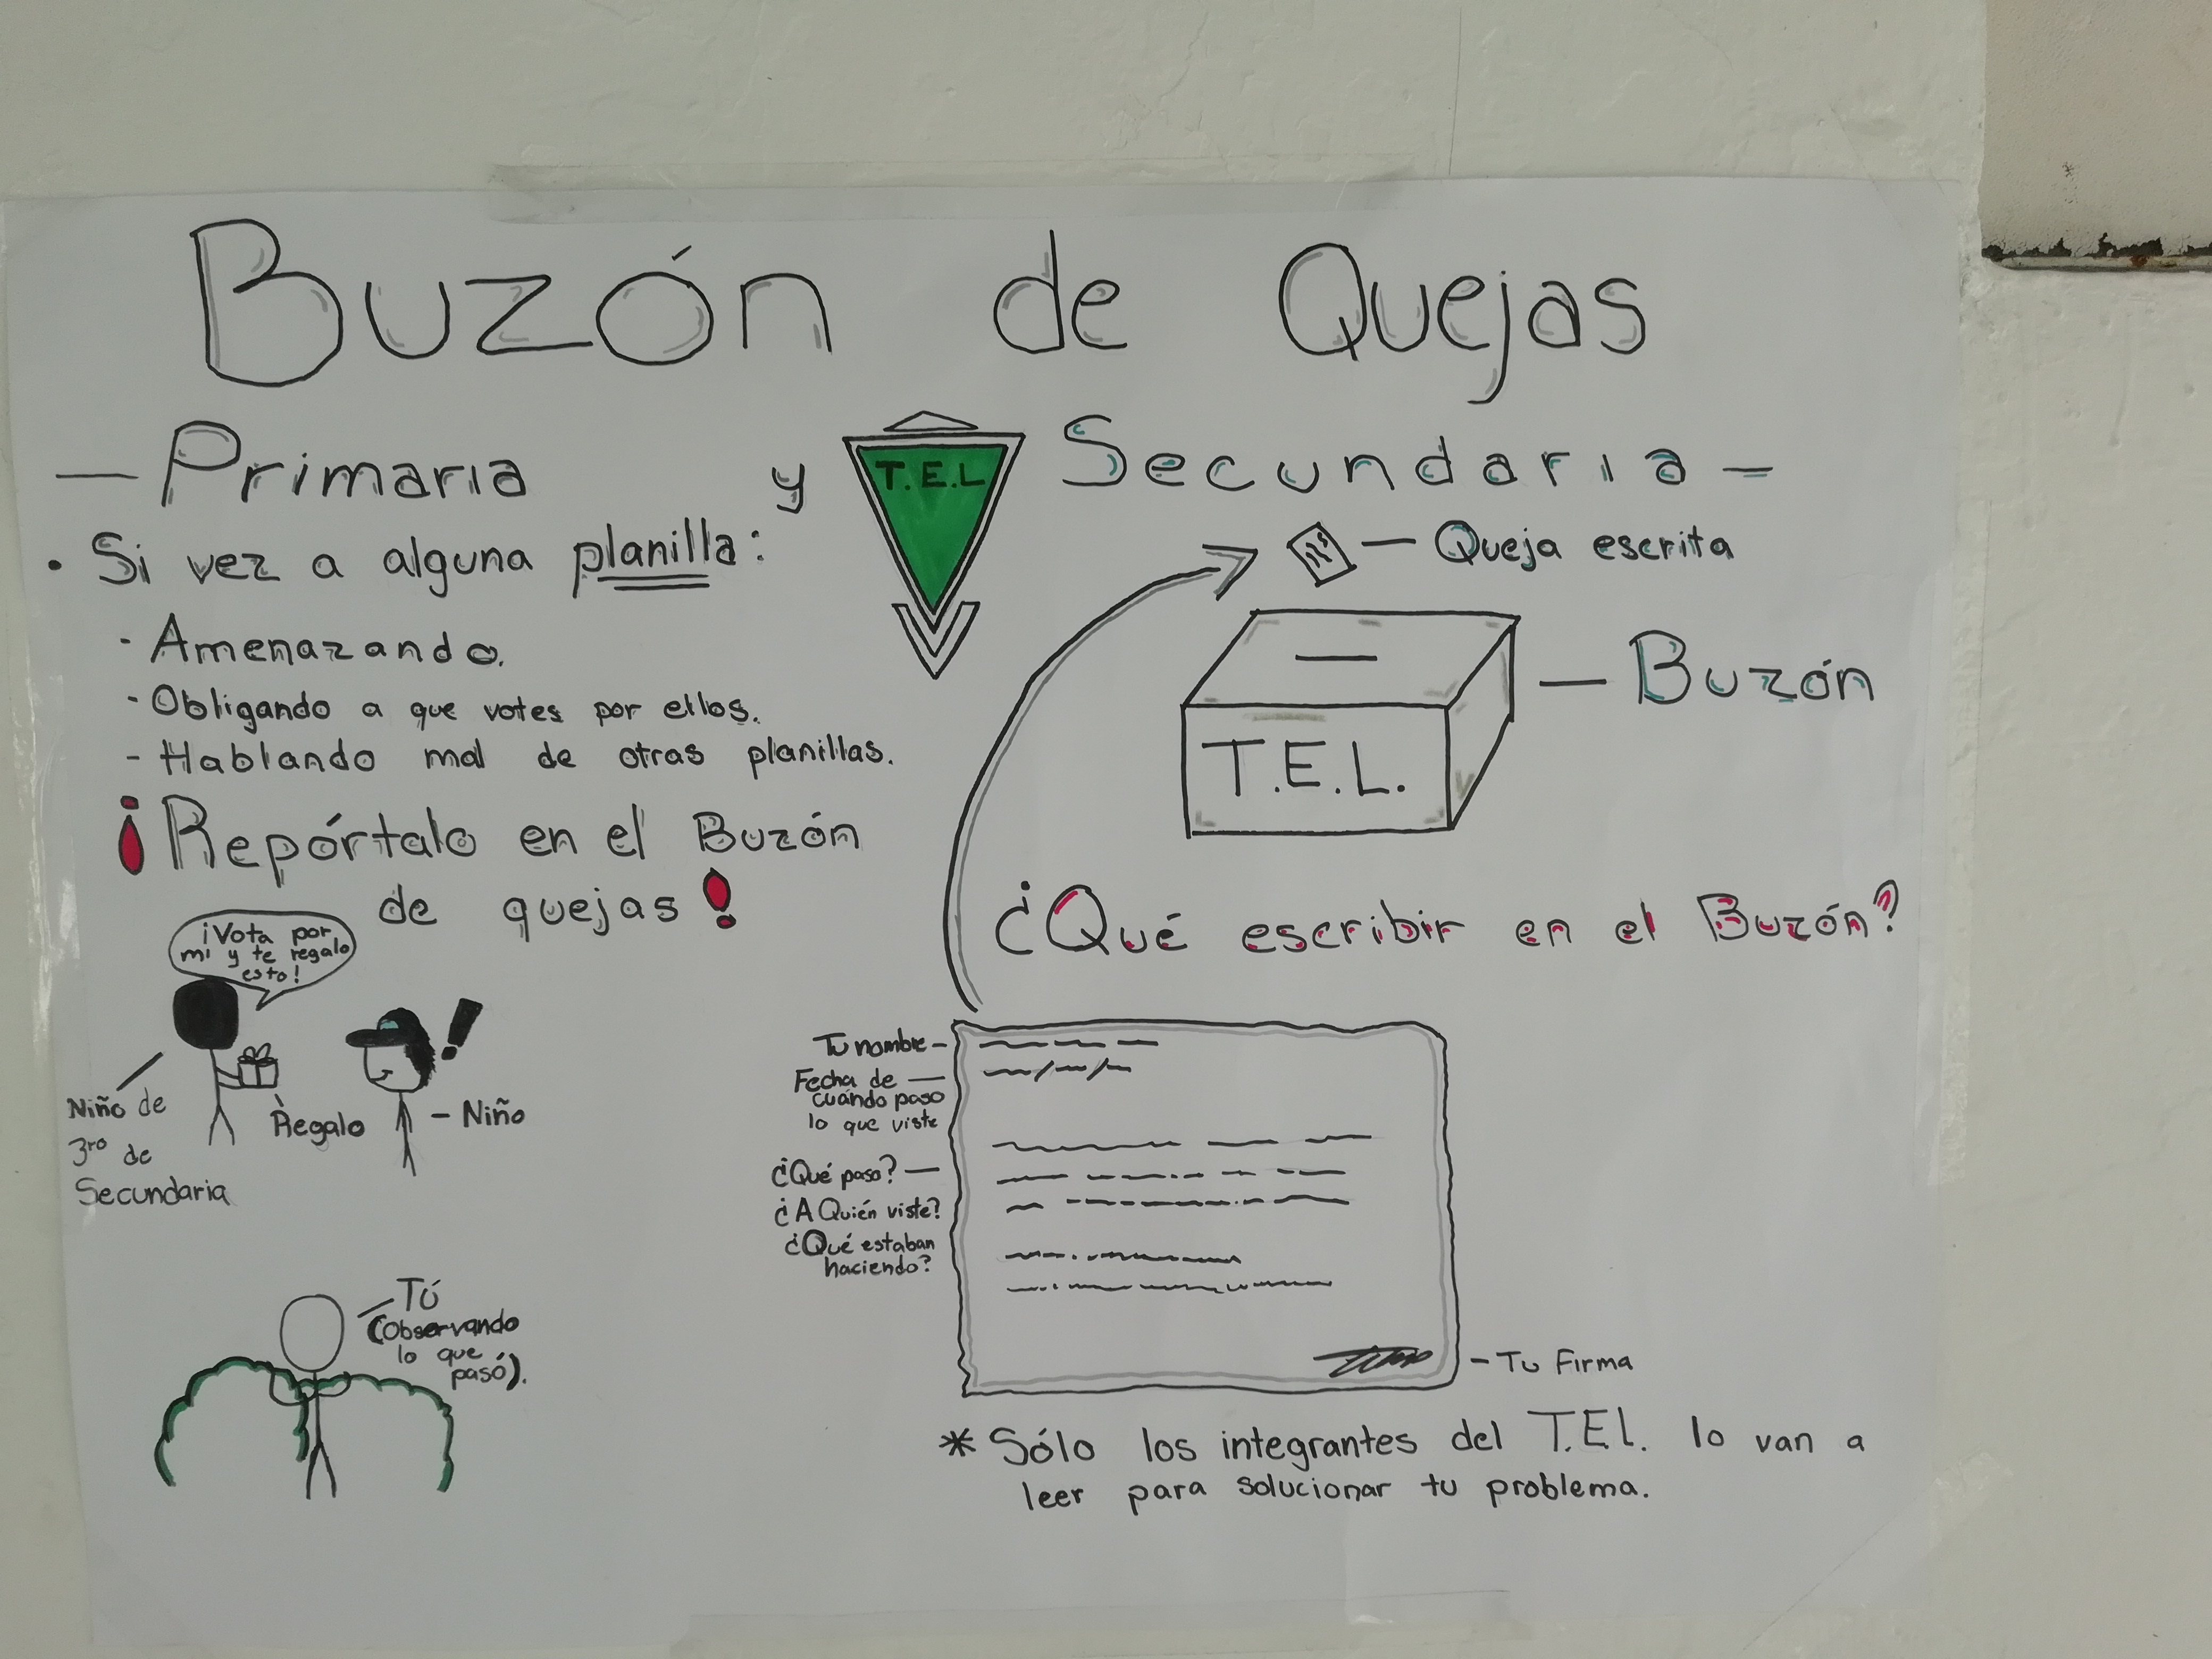 Buzón de Quejas
— Primaria y Secundaria —
T.E.L
• Si vez a alguna planilla:
- Amenazando.
- Obligando a que votes por ellos.
- Hablando mal de otras planillas.
¡Repórtalo en el Buzón
de quejas!
¡Vota por
mi y te regalo
esto!
Niño de
3ro de
Secundaria
Regalo
- Niño
Tú
(Observando
lo que
pasó).
— Queja escrita
— Buzón
T.E.L.
¿Qué escribir en el Buzón?
Tu nombre -
Fecha de —
cuándo paso
lo que viste
¿Qué paso? —
¿A Quién viste?
¿Qué estaban
haciendo?
- Tu Firma
* Sólo los integrantes del T.E.L. lo van a
leer para solucionar tu problema.